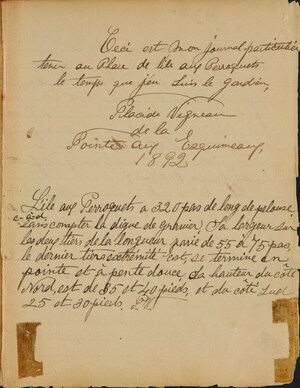 Ceci est mon journal particulier
tenu au Phare de l'ile aux Perroquets
le temps que j'en suis le gardien,
Placide Vigneau
de la
Pointe aux Esquimeaux,
1892
L'ile aux Perroquets a 320 pas de long de pelouse
sans compter la digue de gravier. Sa largeur sur
les deux tiers de la longueur varie de 55 à 75 pas,
le dernier tiers extrémité-est, se termine en
pointe et à pente douce. Sa hauteur du côté
Nord, est de 35 et 40 pieds, et du côté Sud
25 et 30 pieds. P.V.